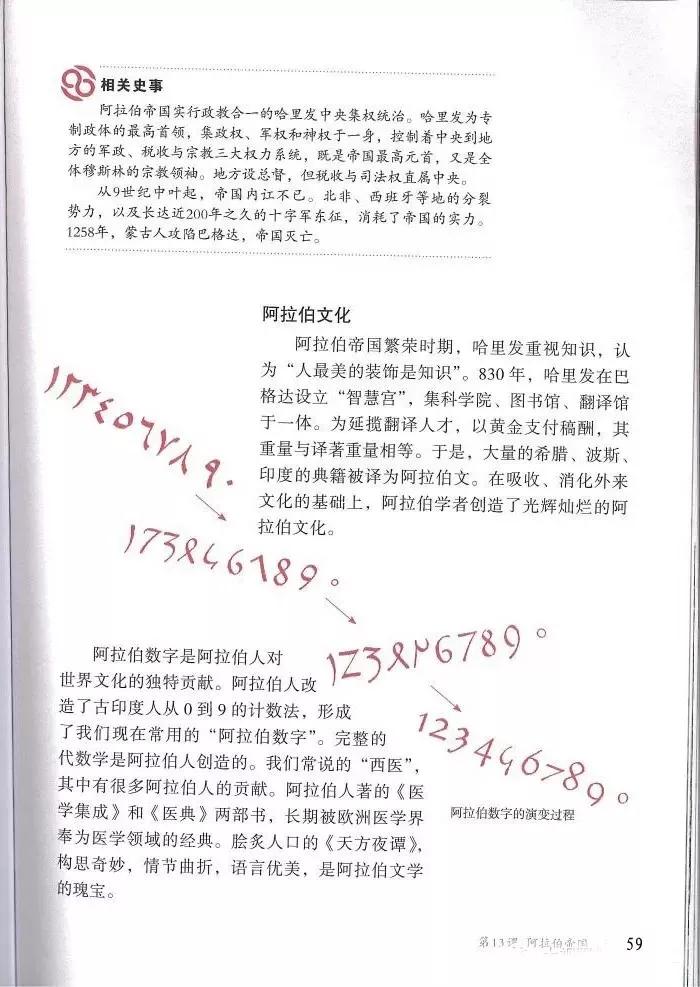 相关史事
阿拉伯帝国实行政教合一的哈里发中央集权统治。哈里发为专
制政体的最高首领，集政权、军权和神权于一身，控制着中央到地
方的军政、税收与宗教三大权力系统，既是帝国最高元首，又是全
体穆斯林的宗教领袖。地方设总督，但税收与司法权直属中央。
从9世纪中叶起，帝国内讧不已。北非、西班牙等地的分裂
势力，以及长达近200年之久的十字军东征，消耗了帝国的实力。
1258年，蒙古人攻陷巴格达，帝国灭亡。
阿拉伯文化
阿拉伯帝国繁荣时期，哈里发重视知识，认
为“人最美的装饰是知识”。830 年，哈里发在巴
格达设立“智慧宫”，集科学院、图书馆、翻译馆
于一体。为延揽翻译人才，以黄金支付稿酬，其
重量与译著重量相等。于是，大量的希腊、波斯、
印度的典籍被译为阿拉伯文。在吸收、消化外来
文化的基础上，阿拉伯学者创造了光辉灿烂的阿
拉伯文化。
阿拉伯数字是阿拉伯人对
世界文化的独特贡献。阿拉伯人改
造了古印度人从 0 到 9 的计数法，形成
了我们现在常用的“阿拉伯数字”。完整的
代数学是阿拉伯人创造的。我们常说的“西医”，
其中有很多阿拉伯人的贡献。阿拉伯人著的《医
学集成》和《医典》两部书，长期被欧洲医学界
奉为医学领域的经典。脍炙人口的《天方夜谭》，
构思奇妙，情节曲折，语言优美，是阿拉伯文学
的瑰宝。
阿拉伯数字的演变过程
第13课 阿拉伯帝国
59